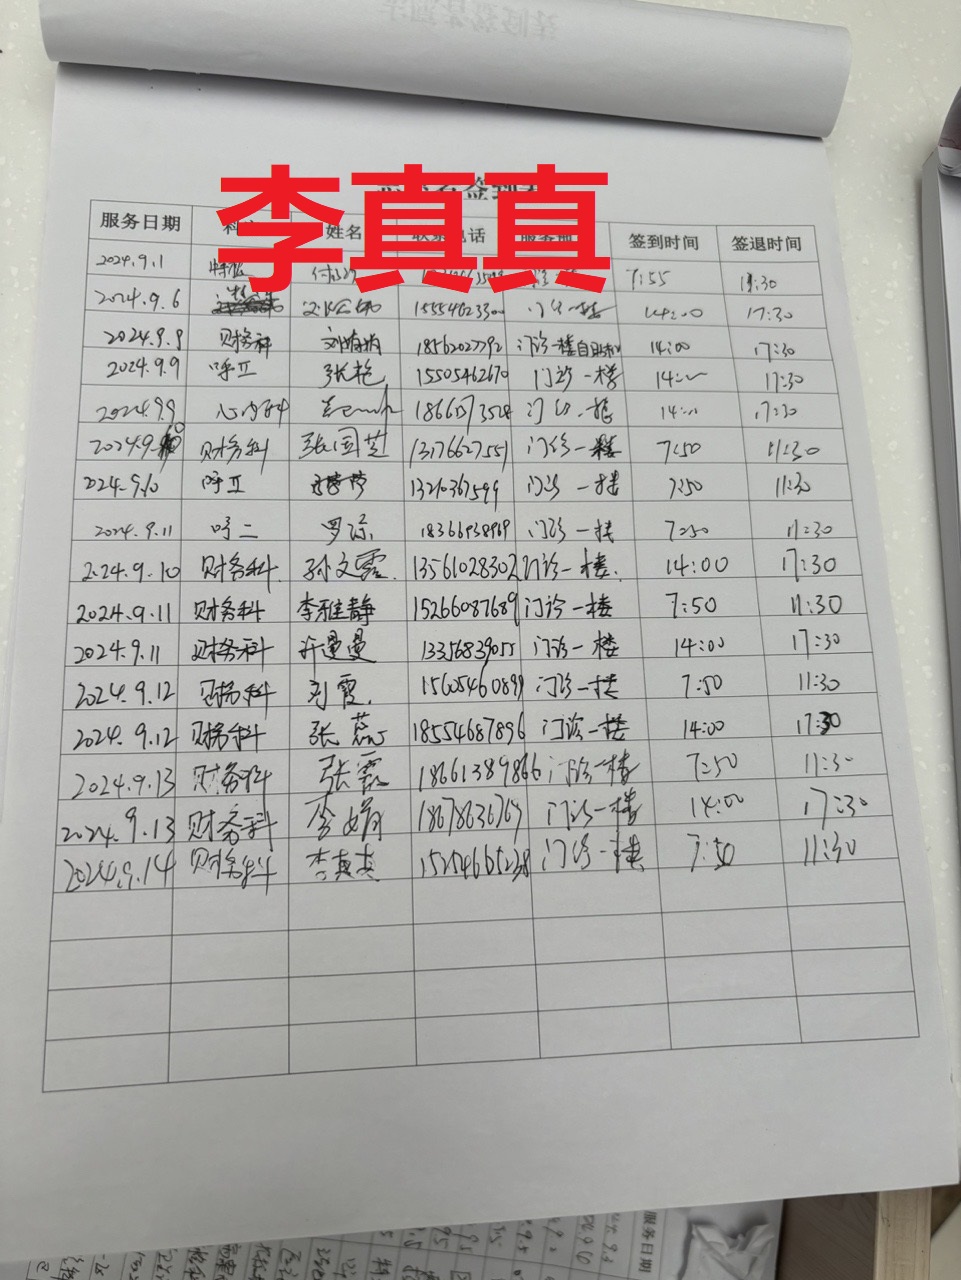 李真真
服务日期 姓名 签到时间 签退时间
2024.9.1 7:55 11:30
2024.9.6 14:00 17:30
2024.9.9 财务科 18562027792 14:00 17:30
2024.9.9 呼Ⅱ 张艳 15505462670 门诊一楼 14: 17:30
2024.9.9 心内科 门诊一楼 17:30
2024.9.10 财务科 张国芝 13176627551 门诊一楼 7:50 11:30
2024.9.10 呼Ⅱ 13210367599 门诊一楼 7:50 11:30
2024.9.11 呼二 18366938969 门诊一楼 7:50 11:30
2024.9.10 财务科 孙文霞 13561028302 门诊一楼 14:00 17:30
2024.9.11 财务科 李雅静 15266087689 门诊一楼 7:50 11:30
2024.9.11 财务科 许曼曼 13356839055 门诊一楼 14:00 17:30
2024.9.12 财务科 刘霞 15605460899 门诊一楼 7:50 11:30
2024.9.12 财务科 张蕊 18554687896 门诊一楼 14:00 17:30
2024.9.13 财务科 张霞 18661389866 门诊一楼 7:50 11:30
2024.9.13 财务科 李娟 18678636767 门诊一楼 14:00 17:30
2024.9.14 财务科 李真真 15254665238 门诊一楼 7:50 11:30
服务日期